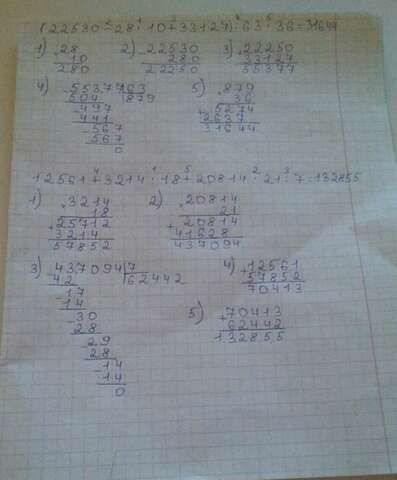 (22530-28·10+33127):63·36=31644
1) 28 2) 22530 3) 22250
10 280 33127
280 22250 55377
4) 55377 63 5) 879
504 879 36
497 5274
441 2637
567 31644
567
0
12561+3214·18+20814·21:7=132855
1) 3214 2) 20814
18 21
25712 20814
3214 41628
57852 437094
3) 437094 7 4) 12561
42 62442 57852
17 70413
14
30 5) 70413
28 62442
29 132855
28
14
14
0